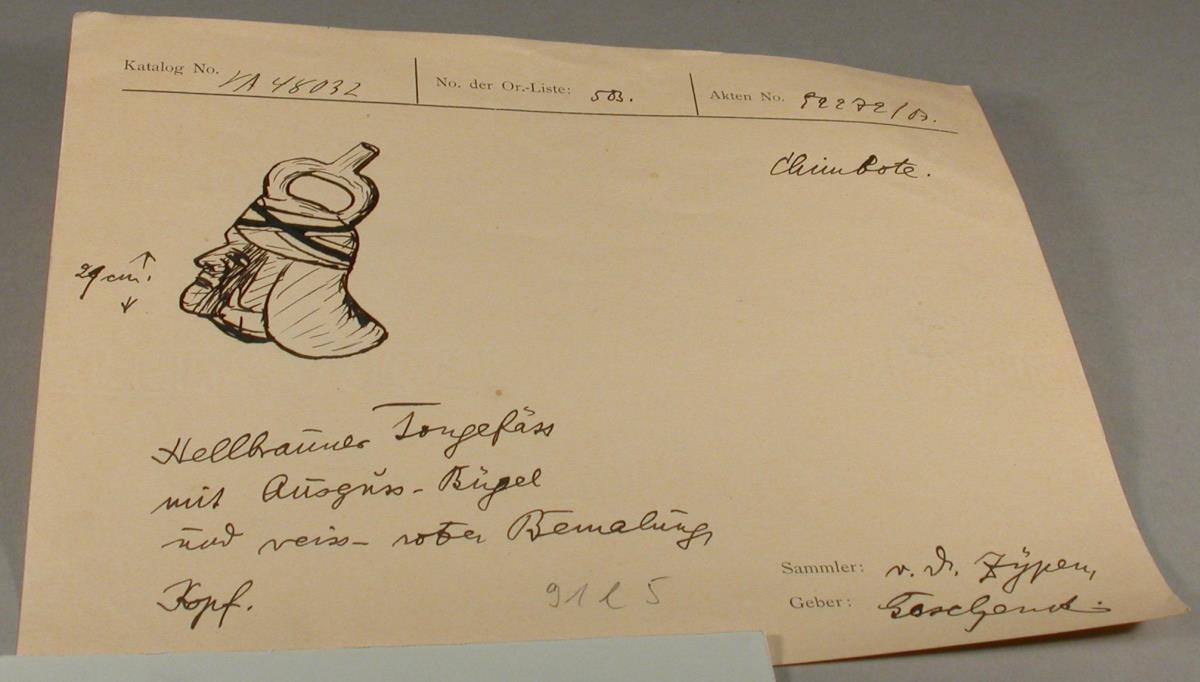 Katalog No. VA 48032 No. der Or.-Liste: 503. Akten No.
Chimbote.
29 cm.
Hellbrauner Tongefäss
mit Ausguss-Bügel
und weiss-roter Bemalung,
Kopf.
91 l 5
Sammler: v. d. Zÿpen,
Geber: Geschenk.